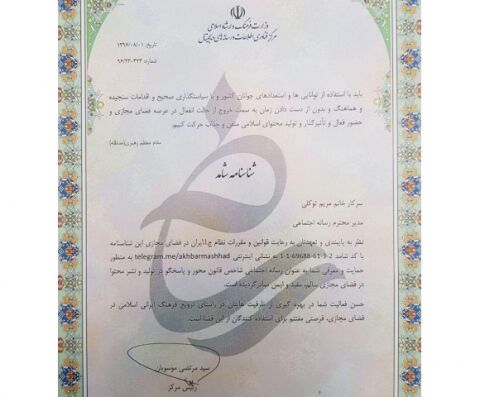 وزارت فرهنگ و ارشاد اسلامی
مرکز فناوری اطلاعات و رسانه های دیجیتال
تاریخ: ۱۳۹۶/۰۸/۰۱
شماره: ۹۶/۲۳-۳۲۳
باید با استفاده از توانایی ها و استعدادهای جوانان کشور و با سیاستگذاری صحیح و اقدامات سنجیده
و هماهنگ و بدون از دست دادن زمان به سمت خروج از حالت انفعال در عرصه فضای مجازی و
حضور فعال و تأثیرگذار و تولید محتوای اسلامی متقن و جذاب حرکت کنیم.
مقام معظم رهبری(مدظله)
شناسنامه شامد
سرکار خانم مریم توکلی
مدیر محترم رسانه اجتماعی
نظر به پایبندی و تعهدتان به رعایت قوانین و مقررات نظام ج.ا.ایران در فضای مجازی این شناسنامه
با کد شامد 1-1-69688-61-3-2 به نشانی اینترنتی telegram.me/akhbarmashhad به منظور
حمایت و معرفی شما به عنوان رسانه اجتماعی شاخص قانون محور و پاسخگو در تولید و نشر محتوا
در فضای مجازی سالم، مفید و ایمن صادر گردیده است.
حسن فعالیت شما در بهره گیری از ظرفیت هایتان در راستای ترویج فرهنگ ایرانی اسلامی در
فضای مجازی، فرصتی مغتنم برای استفاده کنندگان از این فضا است.
سید مرتضی موسویان
رئیس مرکز